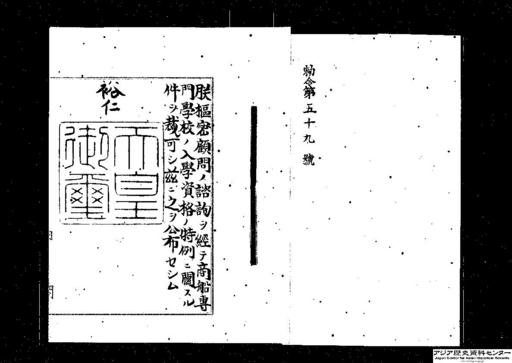 勅令第五十九號
朕樞密顧問ノ諮詢ヲ經テ商船專
門學校ノ入學資格ノ特例ニ關スル
件ヲ裁可シ茲ニ之ヲ公布セシム
裕仁
天皇
御璽
アジア歴史資料センター
Japan Center for Asian Historical Records